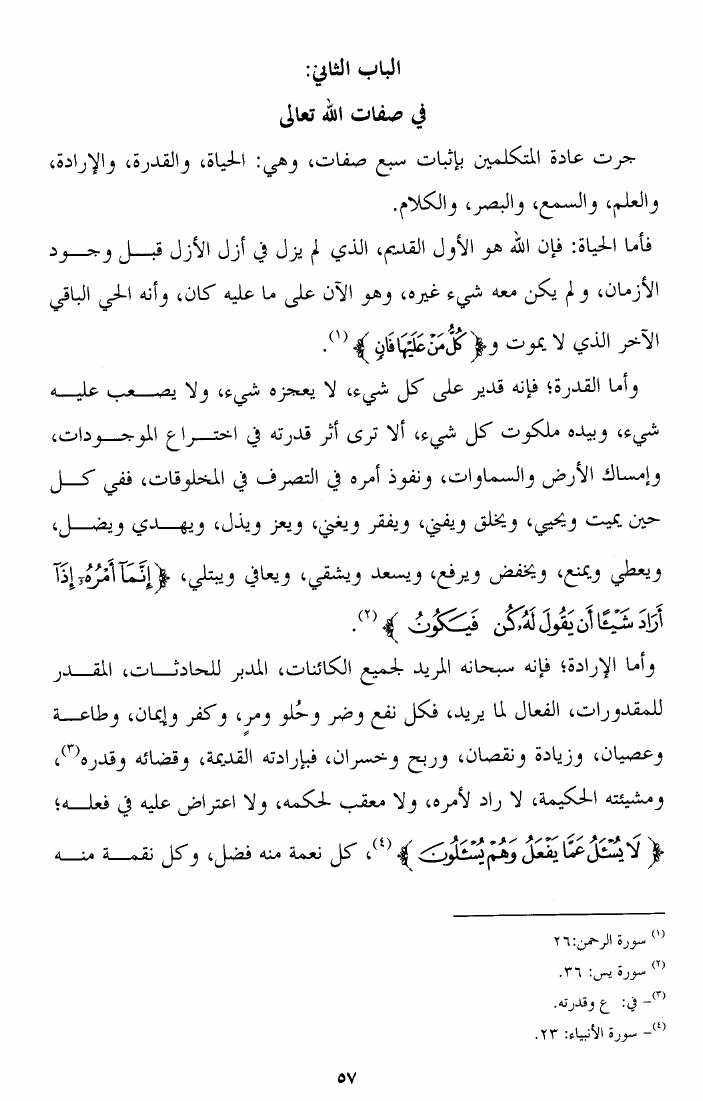 الباب الثاني:
في صفات الله تعالى
جرت عادة المتكلمين بإثبات سبع صفات، وهي: الحياة، والقدرة، والإرادة،
والعلم، والسمع، والبصر، والكلام.
فأما الحياة: فإن الله هو الأول القديم، الذي لم يزل في أزل الأزل قبل وجود
الأزمان، ولم يكن معه شيء غيره، وهو الآن على ما عليه كان، وأنه الحي الباقي
الآخر الذي لا يموت و﴿كُلُّ مَنْ عَلَيْهَا فَانٍ﴾(١).
وأما القدرة؛ فإنه قدير على كل شيء، لا يعجزه شيء، ولا يصعب عليه
شيء، وبيده ملكوت كل شيء، ألا ترى أثر قدرته في اختراع الموجودات،
وإمساك الأرض والسماوات، ونفوذ أمره في التصرف في المخلوقات، ففي كل
حين يميت ويحيي، ويخلق ويفني، ويفقر ويغني، ويعز ويذل، ويهدي ويضل،
ويعطي ويمنع، ويخفض ويرفع، ويسعد ويشقي، ويعافي ويبتلي، ﴿إِنَّمَآ أَمْرُهُۥٓ إِذَآ
أَرَادَ شَيْـًٔا أَن يَقُولَ لَهُۥ كُن فَيَكُونُ﴾(٢).
وأما الإرادة؛ فإنه سبحانه المريد لجميع الكائنات، المدبر للحادثات، المقدر
للمقدورات، الفعال لما يريد، فكل نفع وضر وحُلو ومرٍ، وكفر وإيمان، وطاعة
وعصيان، وزيادة ونقصان، وربح وخسران، فبإرادته القديمة، وقضائه وقدره(٣)،
ومشيئته الحكيمة، لا راد لأمره، ولا معقب لحكمه، ولا اعتراض عليه في فعله؛
﴿لَا يُسْـَٔلُ عَمَّا يَفْعَلُ وَهُمْ يُسْـَٔلُونَ﴾(٤)، كل نعمة منه فضل، وكل نقمة منه
(١) سورة الرحمن:٢٦
(٢) سورة يس: ٣٦.
(٣)- في: ع وقدرته.
(٤)- سورة الأنبياء: ٢٣.
٥٧